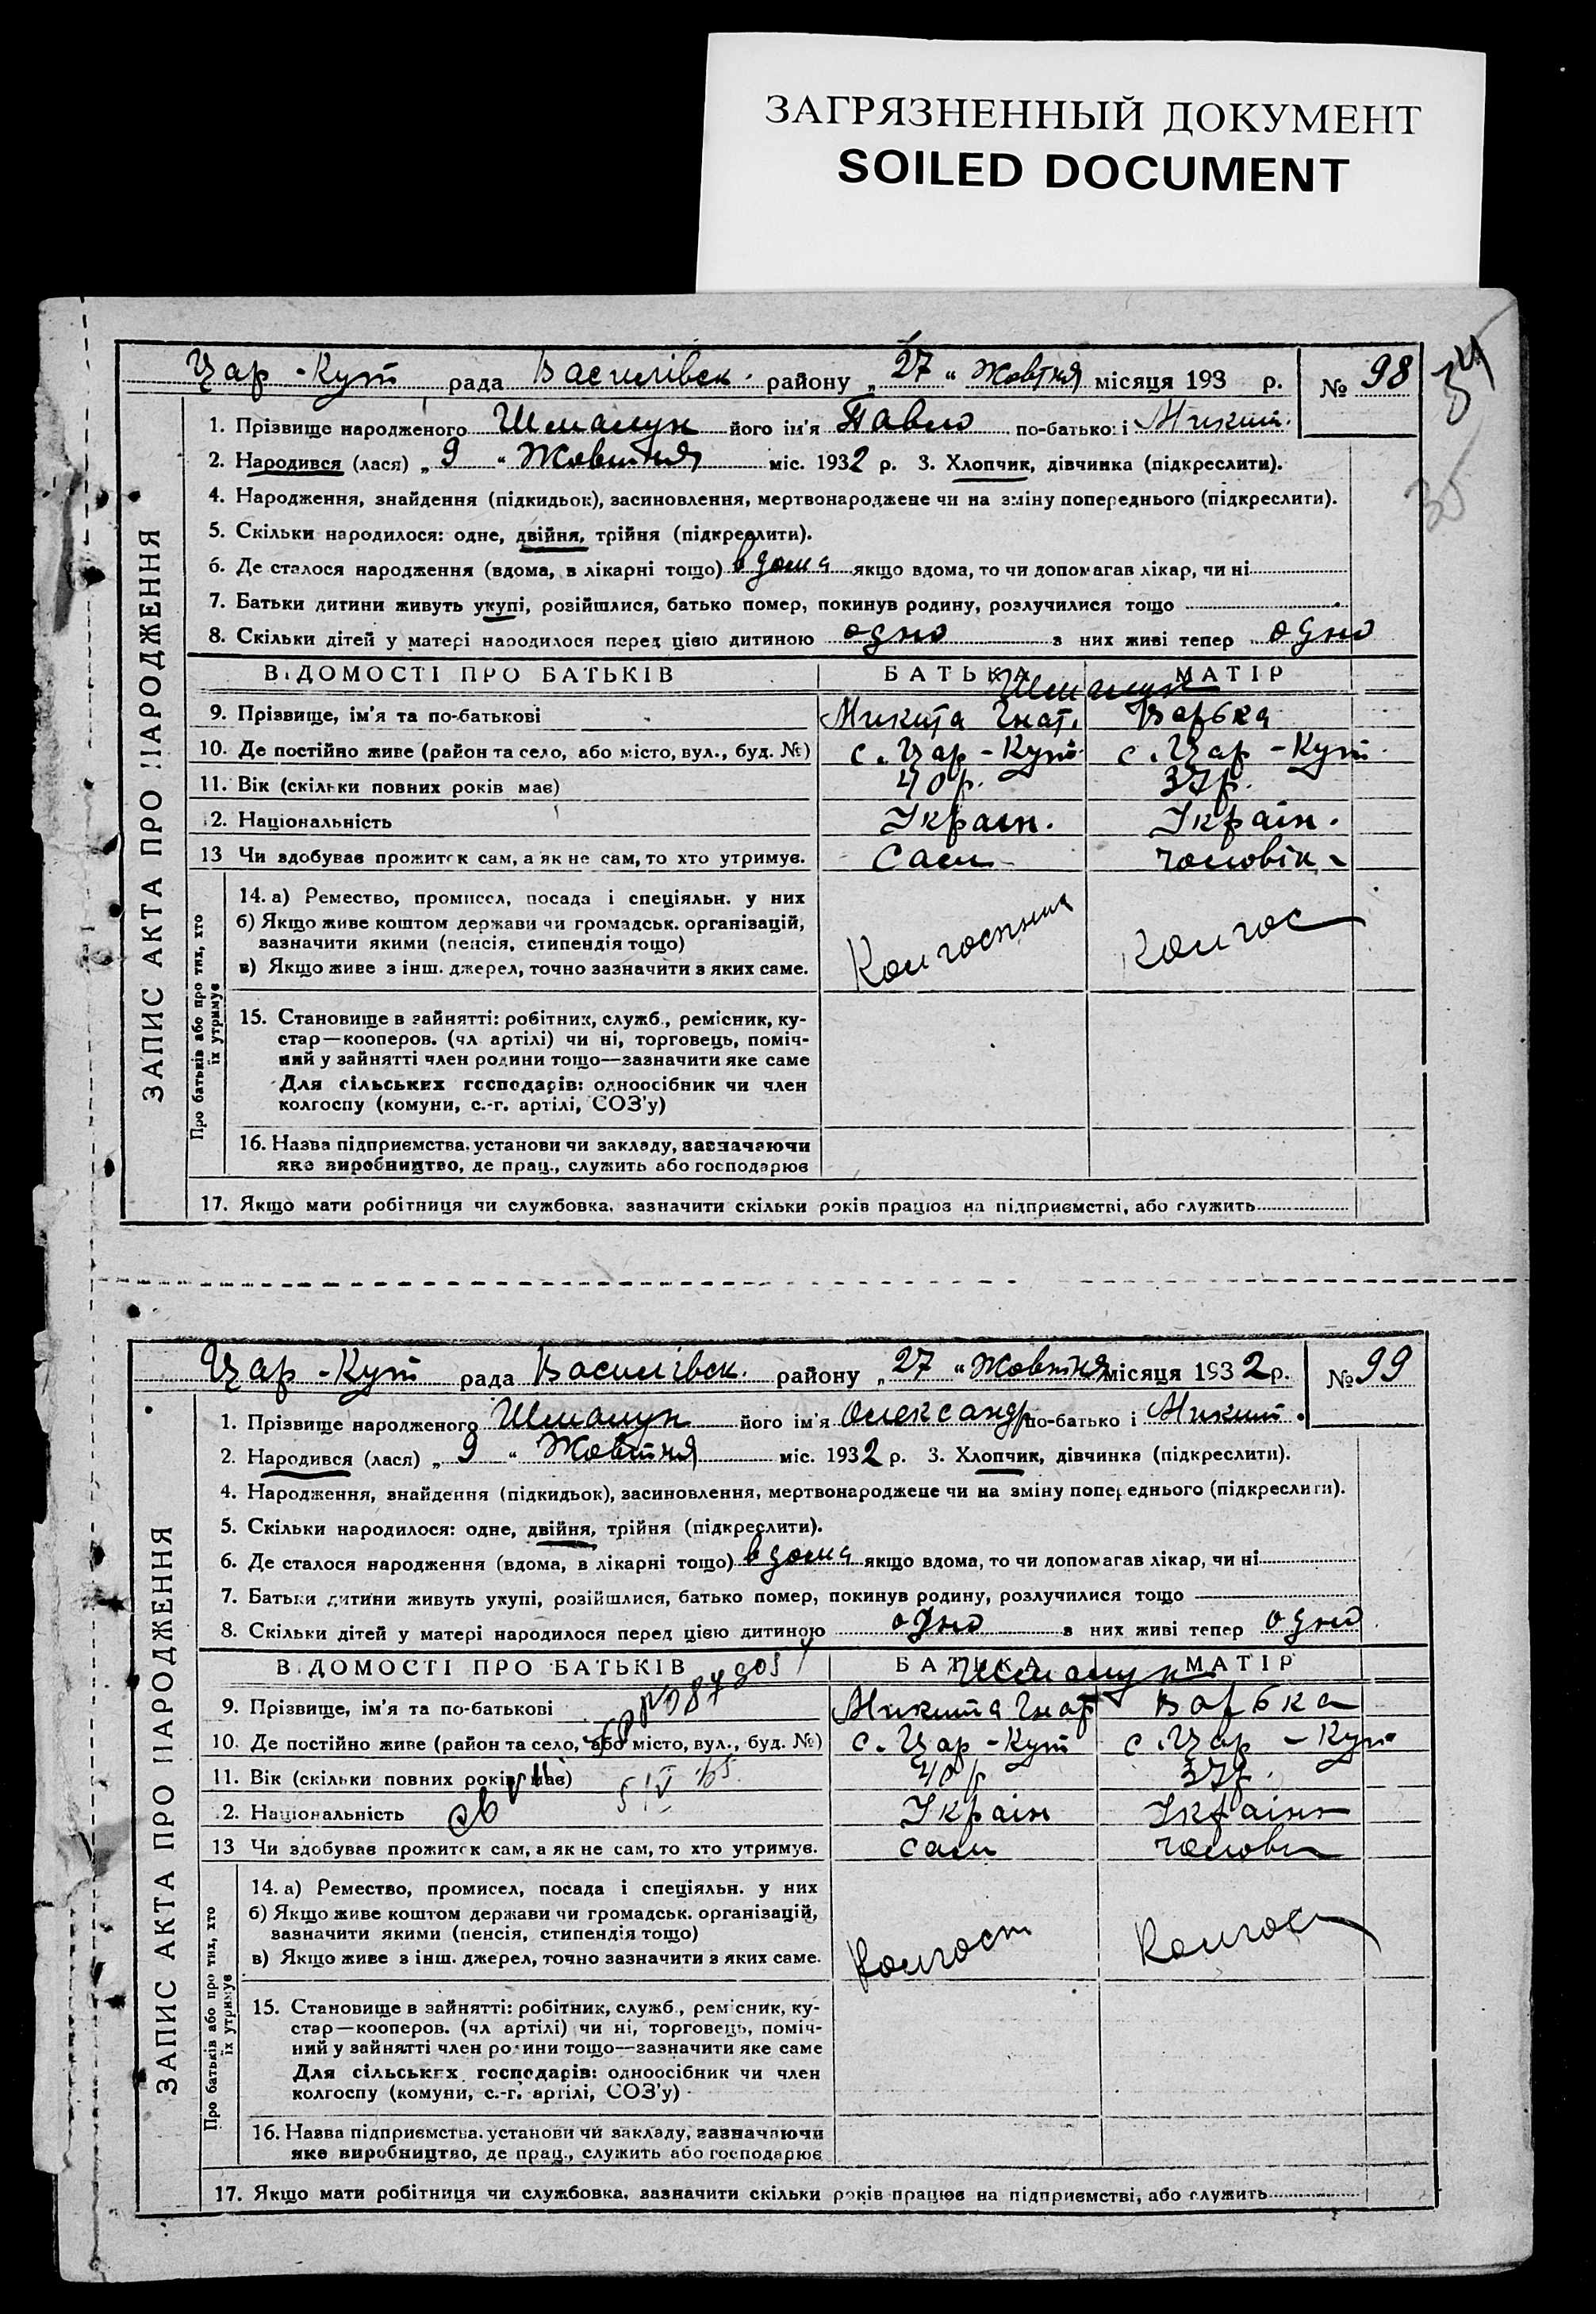 ЗАГРЯЗНЕННЫЙ ДОКУМЕНТ
SOILED DOCUMENT
34
35
ЗАПИС АКТА ПРО НАРОДЖЕННЯ
Цар-Кут рада Василівск. району „27“ Жовтня місяця 193 р. № 98
1. Прізвище народженого його ім'я Павло по-батькові Микит.
2. Народився (лася) „9“ Жовтня міс. 1932 р. 3. Хлопчик, дівчинка (підкреслити).
4. Народження, знайдення (підкидьок), засиновлення, мертвонароджене чи на зміну попереднього (підкреслити).
5. Скільки народилося: одне, двійня, трійня (підкреслити).
6. Де сталося народження (вдома, в лікарні тощо) вдома якщо вдома, то чи допомагав лікар, чи ні
7. Батьки дитини живуть укупі, розійшлися, батько помер, покинув родину, розлучилися тощо
8. Скільки дітей у матері народилося перед цією дитиною одно з них живі тепер одно
ВІДОМОСТІ ПРО БАТЬКІВ БАТЬКА МАТІР
9. Прізвище, ім'я та по-батькові Микита Гнат. Варька
10. Де постійно живе (район та село, або місто, вул., буд. №) с. Цар-Кут с. Цар-Кут
11. Вік (скільки повних років має) 40 р. 37 р.
12. Національність Україн. Україн.
13 Чи здобуває прожиток сам, а як не сам, то хто утримує. Сам чоловік
Про батьків або про тих, хто їх утримує
14. а) Ремество, промисел, посада і спеціяльн. у них
б) Якщо живе коштом держави чи громадськ. організацій,
зазначити якими (пенсія, стипендія тощо)
в) Якщо живе з інш. джерел, точно зазначити з яких саме.
Колгос
15. Становище в зайнятті: робітник, служб., ремісник, ку-
стар—кооперов. (чл артілі) чи ні, торговець, поміч-
ний у зайнятті член родини тощо—зазначити яке саме
Для сільських господарів: одноосібник чи член
колгоспу (комуни, с.-г. артілі, СОЗ'у)
16. Назва підприємства, установи чи закладу, зазначаючи
яке виробництво, де прац., служить або господарює
17. Якщо мати робітниця чи службовка, зазначити скільки років працює на підприємстві, або служить
ЗАПИС АКТА ПРО НАРОДЖЕННЯ
Цар-Кут рада Василівск. району „27“ Жовтня місяця 1932 р. № 99
1. Прізвище народженого його ім'я Олександр по-батькові Микит.
2. Народився (лася) „9“ Жовтня міс. 1932 р. 3. Хлопчик, дівчинка (підкреслити).
4. Народження, знайдення (підкидьок), засиновлення, мертвонароджене чи на зміну попереднього (підкреслити).
5. Скільки народилося: одне, двійня, трійня (підкреслити).
6. Де сталося народження (вдома, в лікарні тощо) вдома якщо вдома, то чи допомагав лікар, чи ні
7. Батьки дитини живуть укупі, розійшлися, батько помер, покинув родину, розлучилися тощо
8. Скільки дітей у матері народилося перед цією дитиною одно з них живі тепер одно
ВІДОМОСТІ ПРО БАТЬКІВ БАТЬКА МАТІР
9. Прізвище, ім'я та по-батькові Микита Гнат Варька
10. Де постійно живе (район та село, або місто, вул., буд. №) с. Цар-Кут с. Цар-Кут
11. Вік (скільки повних років має) 40 р 37 р.
12. Національність Україн Україн
13 Чи здобуває прожиток сам, а як не сам, то хто утримує. сам
Про батьків або про тих, хто їх утримує
14. а) Ремество, промисел, посада і спеціяльн. у них
б) Якщо живе коштом держави чи громадськ. організацій,
зазначити якими (пенсія, стипендія тощо)
в) Якщо живе з інш. джерел, точно зазначити з яких саме.
Колгосп Колгосп
15. Становище в зайнятті: робітник, служб., ремісник, ку-
стар—кооперов. (чл артілі) чи ні, торговець, поміч-
ний у зайнятті член родини тощо—зазначити яке саме
Для сільських господарів: одноосібник чи член
колгоспу (комуни, с.-г. артілі, СОЗ'у)
16. Назва підприємства, установи чи закладу, зазначаючи
яке виробництво, де прац., служить або господарює
17. Якщо мати робітниця чи службовка, зазначити скільки років працює на підприємстві, або служить